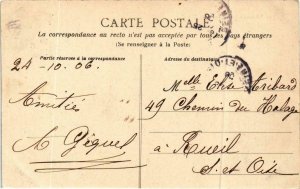 CARTE POSTALE
La correspondance au recto n'est pas acceptée par tous les pays étrangers
(Se renseigner à la Poste)
Partie réservée à la correspondance
Adresse du destinataire
24-10-06.
Amitiés
Melle Elise Aribard
49 Chemin du Halage
à Rueil
S. et Oise